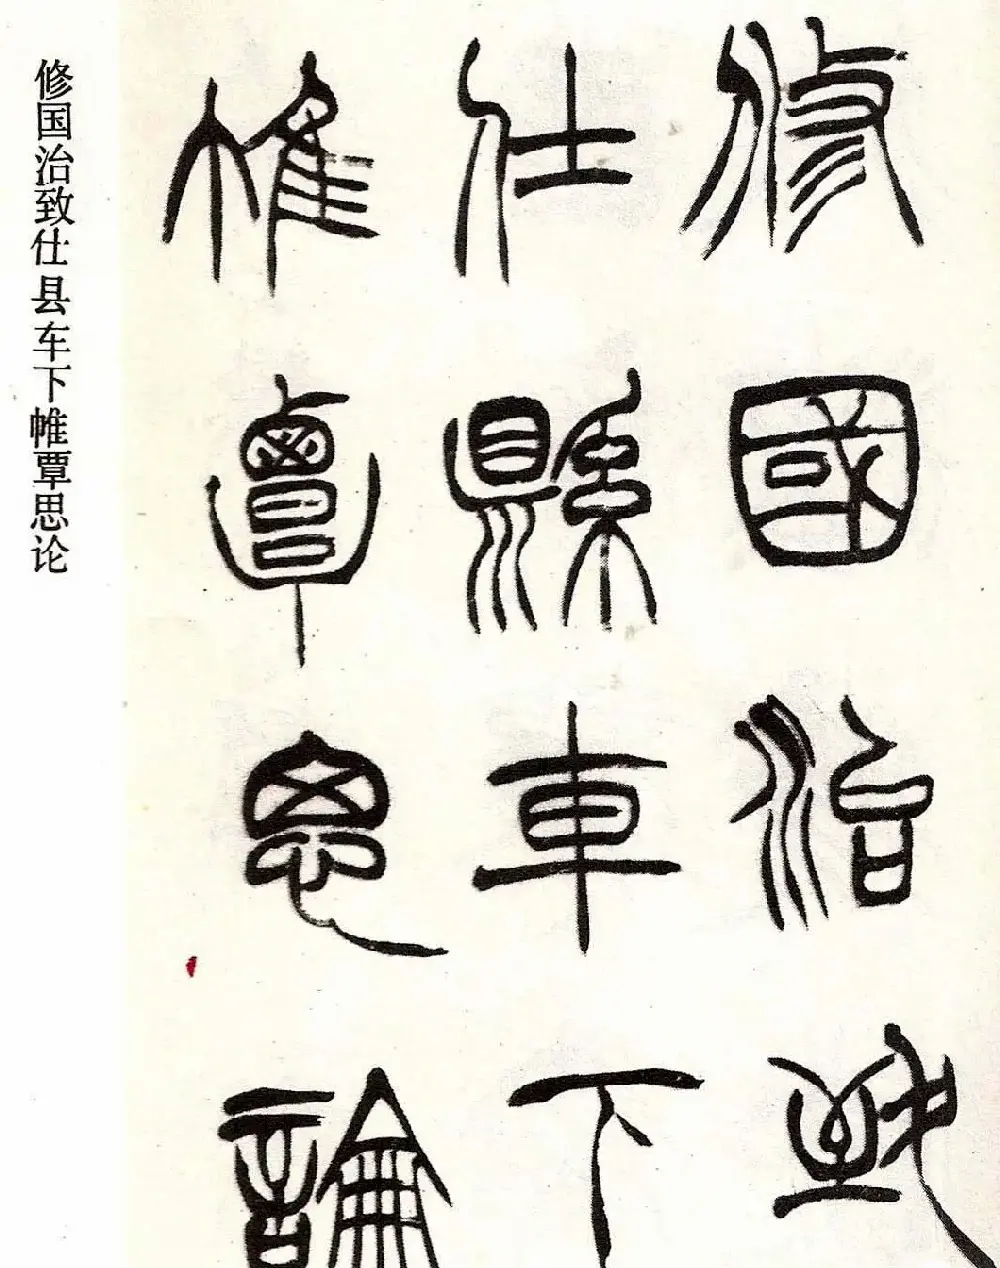 修國治致
仕縣車下
帷覃思論
修国治致仕县车下帷覃思论